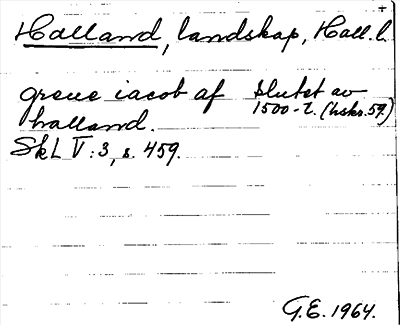 +
Halland, landskap, Hall. l.
greue iacob af slutet av
halland. 1500-t. (hskr. 59.)
SkL V:3, s. 459.
G.E. 1964.